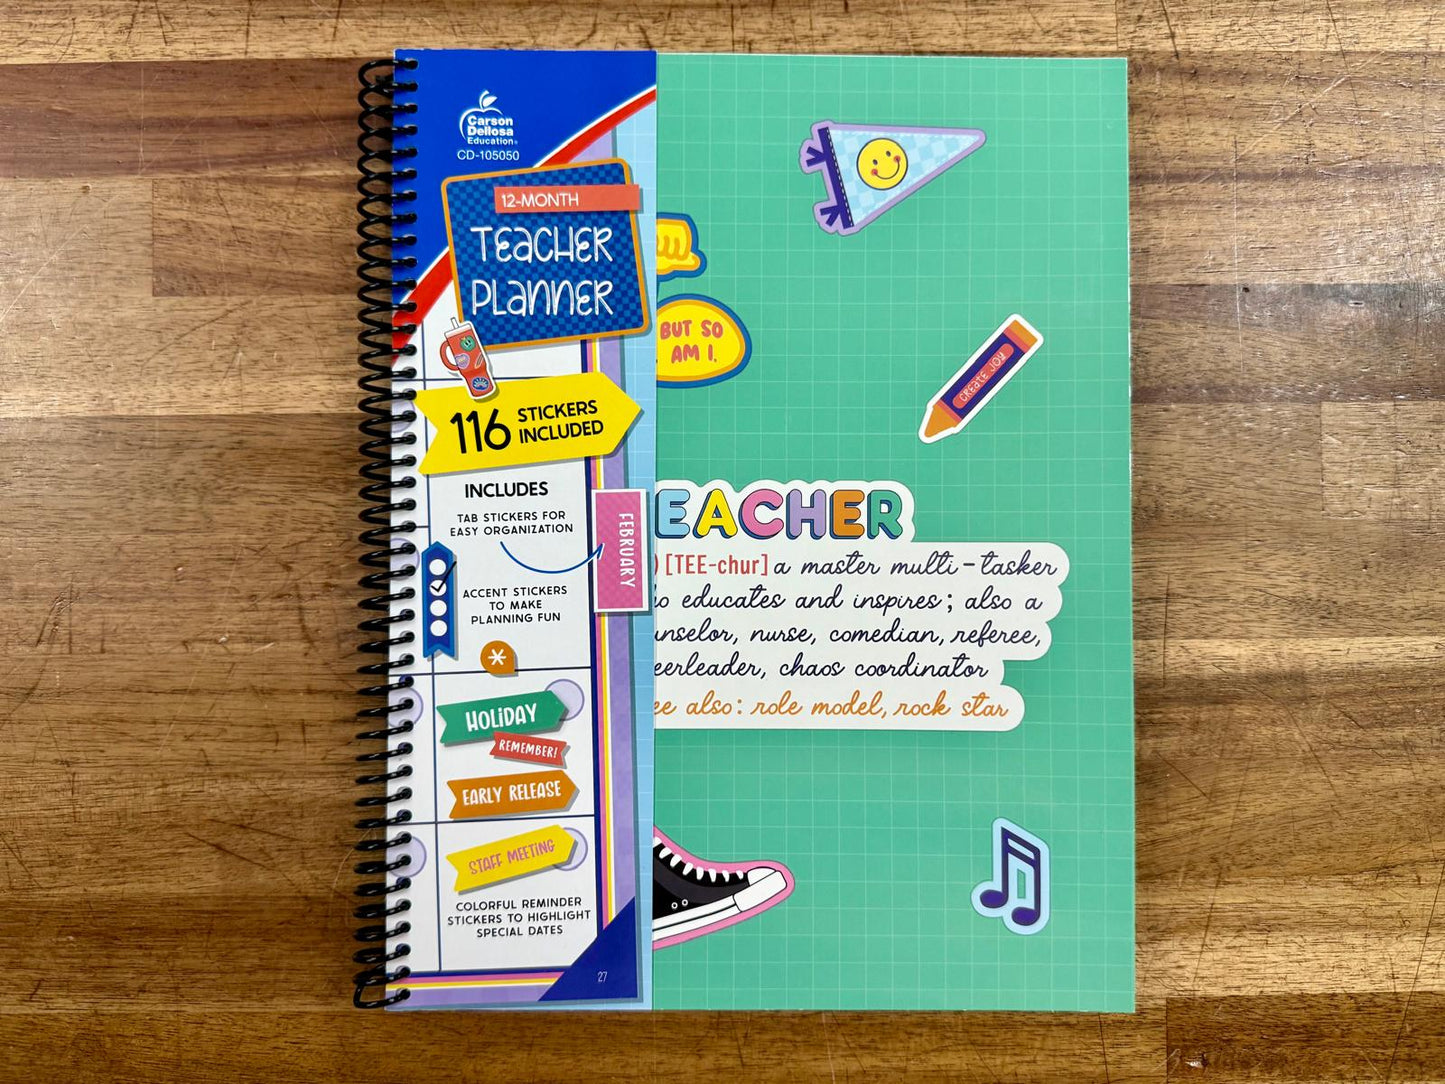 Carson
Dellosa
Education
CD-105050
12-MONTH
TEACHER
PLANNER
116 STICKERS
INCLUDED
INCLUDES
TAB STICKERS FOR
EASY ORGANIZATION
FEBRUARY
ACCENT STICKERS
TO MAKE
PLANNING FUN
HOLIDAY
REMEMBER!
EARLY RELEASE
STAFF MEETING
COLORFUL REMINDER
STICKERS TO HIGHLIGHT
SPECIAL DATES
27
BUT SO
AM I.
CREATE JOY
EACHER
) [TEE-chur] a master multi-tasker
educates and inspires; also a
nselor, nurse, comedian, referee,
eerleader, chaos coordinator
ee also: role model, rock star